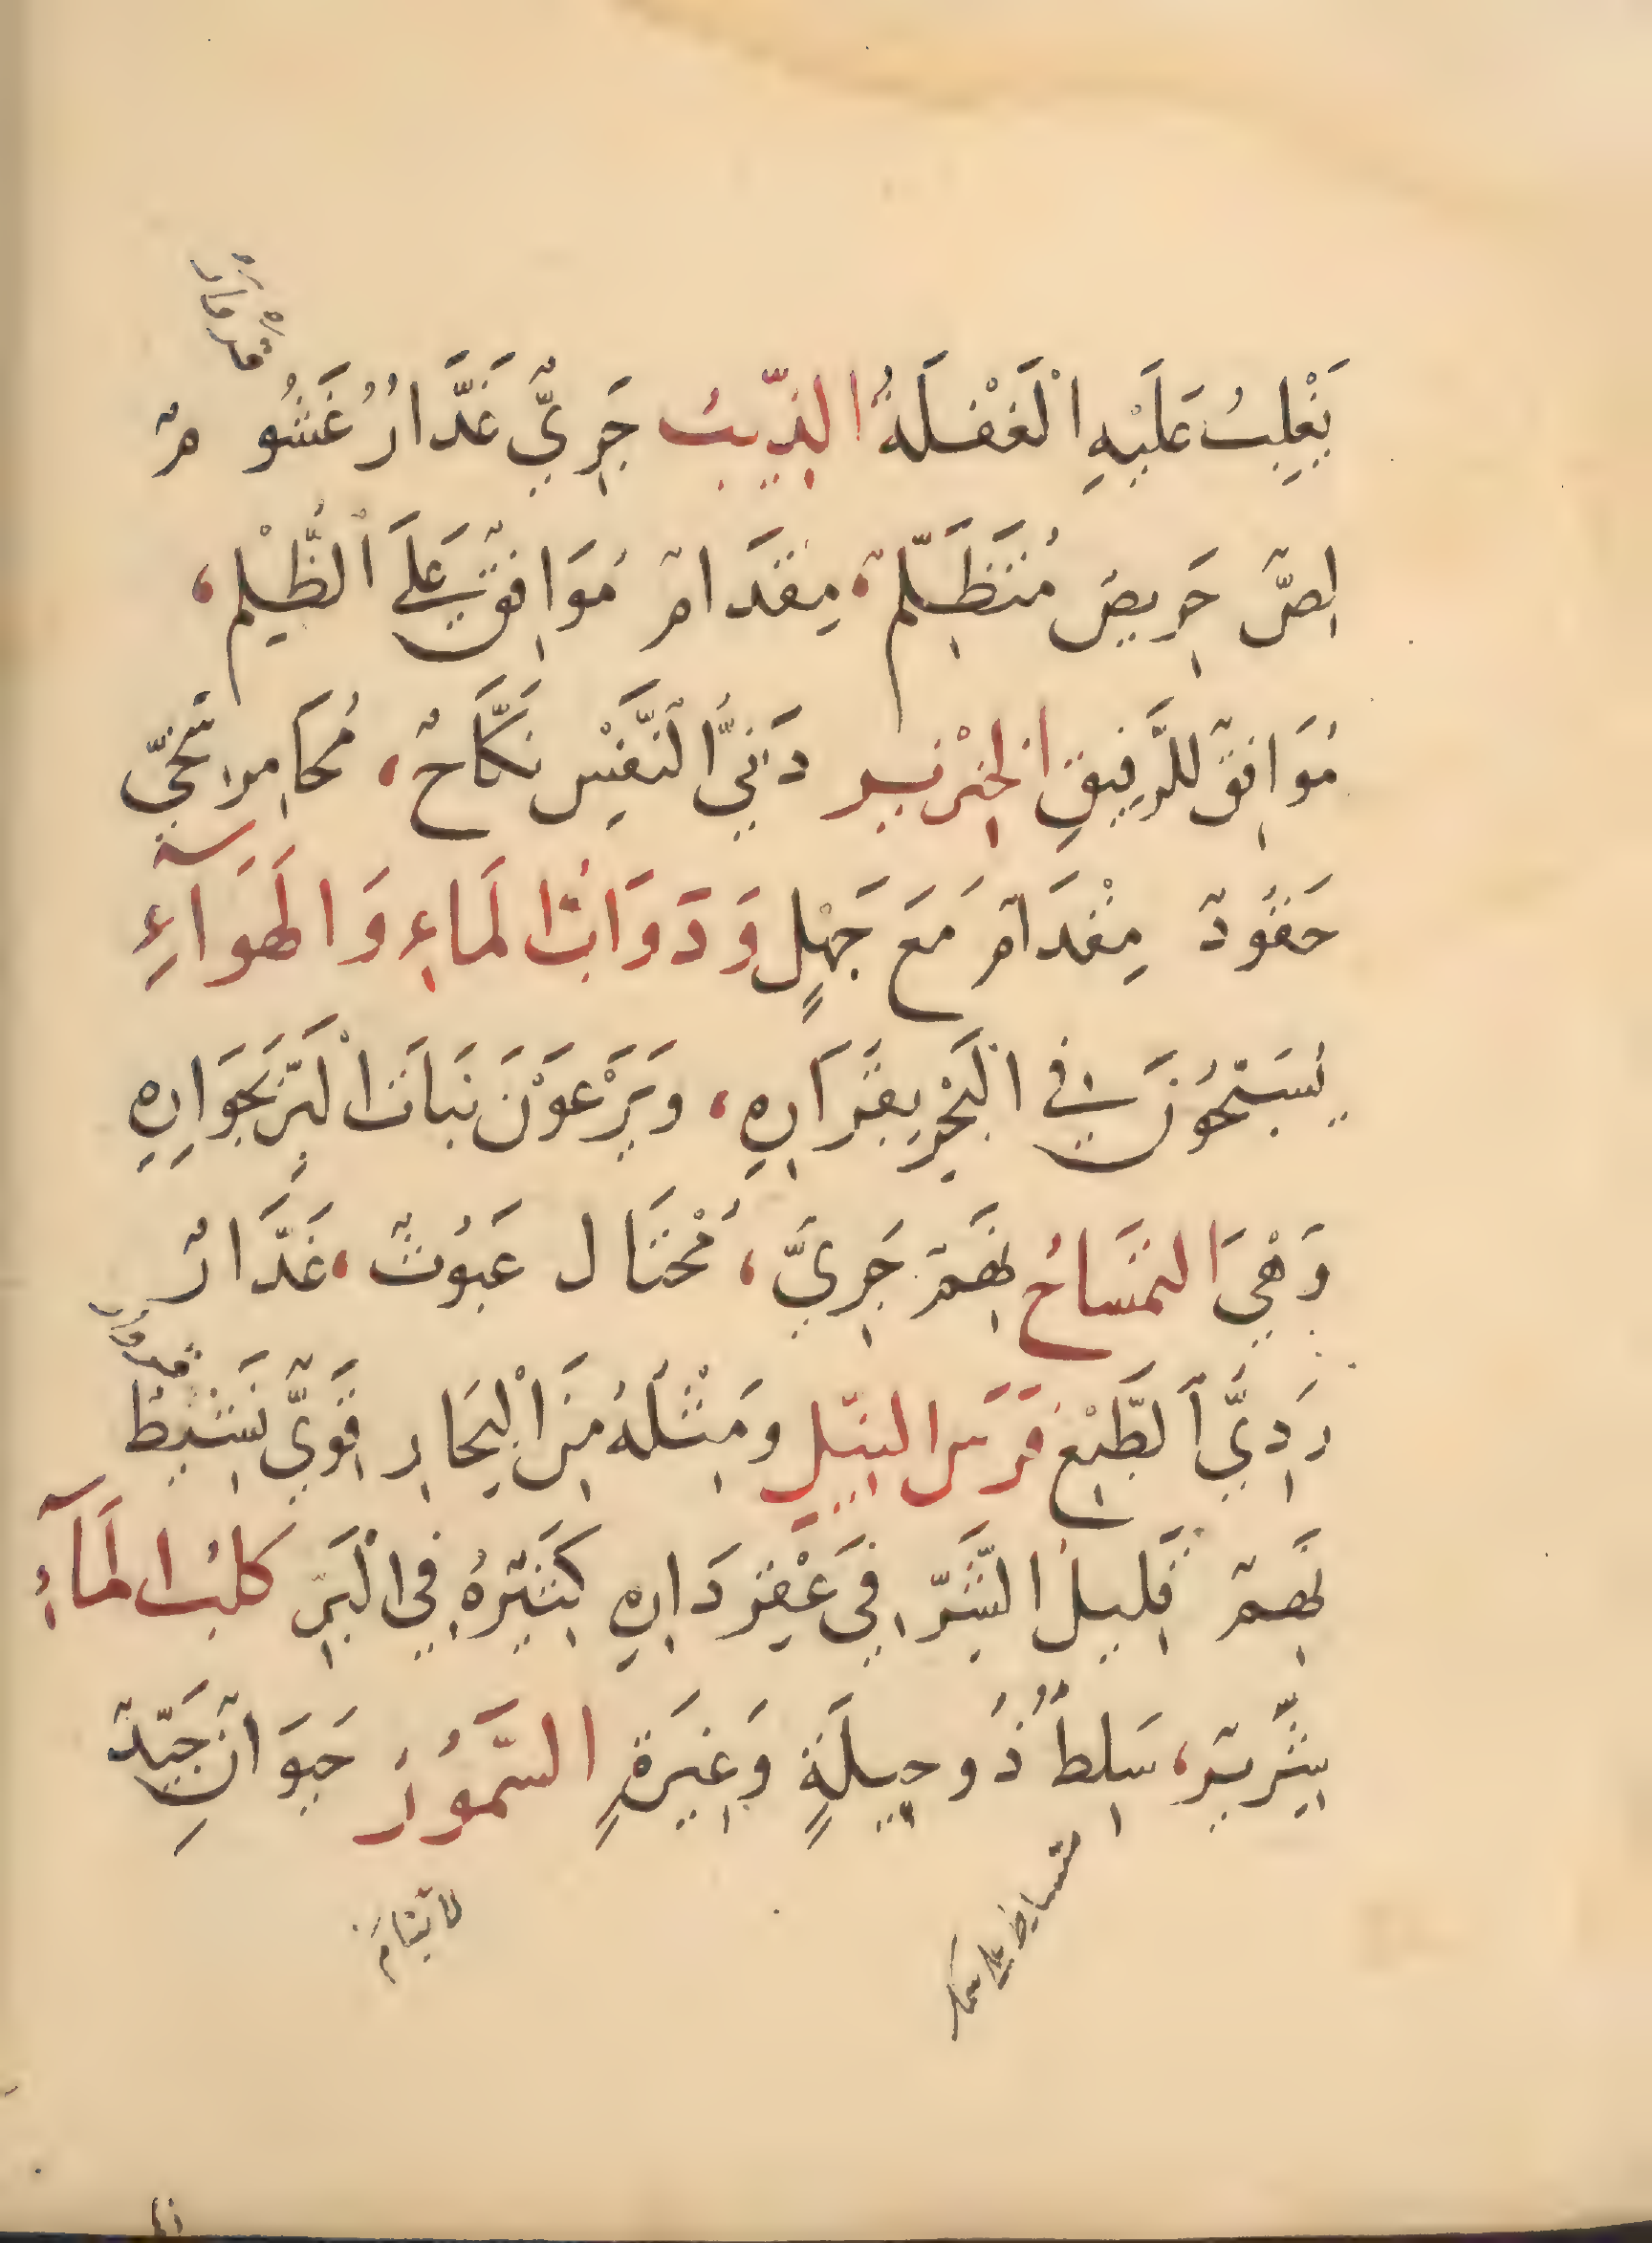 يَغْلِبُ عَلَيْهِ الْغَفْلَةُ الذِّيبُ جَرِيٌّ غَدَّارٌ غَشُومٌ
لِصٌّ حَرِيصٌ مُتَظَلِّمٌ، مِقْدَامٌ مُوَافِقٌ عَلَى الظُّلْمِ،
مُوَافِقٌ لِلرَّفِيقِ الْخِنْزِيرُ دَنِيُّ النَّفْسِ نَكَّاحٌ، مُكَامِرٌ سَخِيٌّ
حَقُودٌ مِقْدَامٌ مَعَ جَهْلٍ وَدَوَابُّ الْمَاءِ وَالْهَوَآءِ
يَسْبَحُونَ فِي الْبَحْرِ بِقَرَارِهِ، وَيَرْعَوْنَ نَبَاتَ الْبَرِّ بِجَوَارِهِ
وَهْيَ التِّمْسَاحُ نَهِمٌ جَرِيٌّ، مُحْتَال عَبُوثٌ، غَدَّارٌ
رَدِيُّ الطَّبْعِ فَرَسُ النِّيلِ وَمِثْلُهُ مِنَ الْبِحَارِ قَوِيٌّ نَشِيطٌ
نَهِمٌ قَلِيلُ الشَّرِّ فِي عَقْرِ دَارِهِ كَثِيرُهُ فِي الْبَرِّ كَلْبُ الْمَآءِ
شِرِّيرٌ، سَلِطٌ ذُو حِيلَةٍ وَغِيرَةٍ السَّمُّورُ حَيَوَانٌ جَيِّدٌ
لا ينام